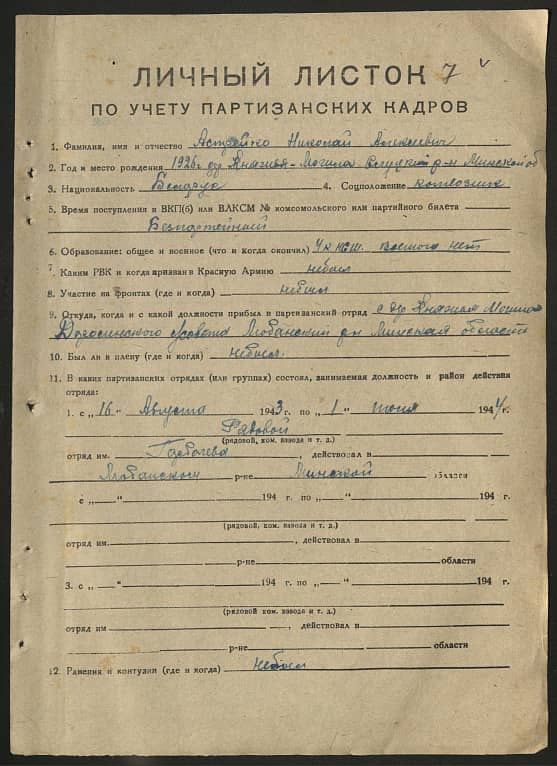 ЛИЧНЫЙ ЛИСТОК 7 v
ПО УЧЕТУ ПАРТИЗАНСКИХ КАДРОВ
1. Фамилия, имя и отчество Астрейко Николай Алексеевич
2. Год и место рождения 1926г дер Княжная-Могила Слуцкий р-н Минской об
3. Национальность Беларус 4. Соцположение колхозник
5. Время поступления в ВКП(б) или ВЛКСМ № комсомольского или партийного билета
Безпартейный
6. Образование: общее и военное (что и когда окончил) 4 кл военого нет
7. Каким РВК и когда призван в Красную Армию небыл
8. Участие на фронтах (где и когда) небыл
9. Откуда, когда и с какой должности прибыл в партизанский отряд с дер Княжная Могила
Любанский р-н Минская область
10. Был ли в плену (где и когда) небыл
11. В каких партизанских отрядах (или группах) состоял, занимаемая должность и район действия
отряда:
1. с „16" Августа 1943 г. по „1" июня 1944 г.
Рядовой
(рядовой, ком. взвода и т. д.)
отряд им. Горбачева, действовал в
Любанском р-не Минской области
с „—" 194 г. по „—" 194 г.
(рядовой, ком. взвода и т. д.)
отряд им. , действовал в
р-не области
3. с „—" 194 г. по „—" 194 г.
(рядовой, ком. взвода и т. д.)
отряд им , действовал в
р-не области
12. Ранения и контузии (где и когда) небыл